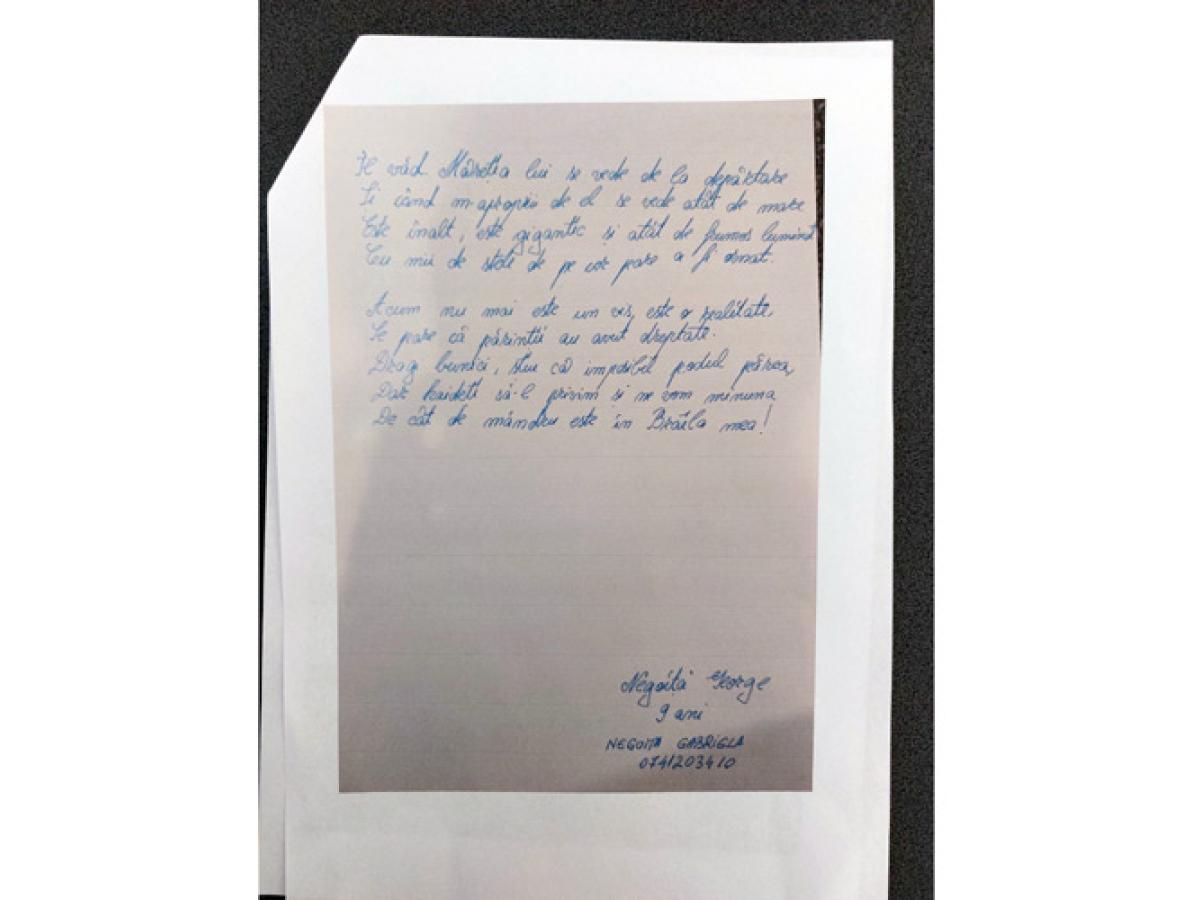 Îl văd. Măreția lui se vede de la depărtare
Și când m-apropii de el se vede atât de mare
Este înalt, este gigantic și atât de frumos luminat
Cu mii de stele de pe cer pare a fi ornat.
Acum nu mai este un vis, este o realitate,
Se pare că părinții au avut dreptate.
Dragi bunici, știu că imposibil podul părea,
Dar haideți să-l privim și ne vom minuna
De cât de mândru este în Brăila mea!
Negoiță George
9 ani
NEGOITA GABRIELA
0741203410